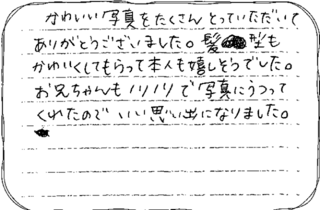 かわいい写真をたくさんとっていただいて
ありがとうございました。髪型も
かわいくしてもらって本人も嬉しそうでした。
お兄ちゃんもノリノリで写真にうつって
くれたのでいい思い出になりました。